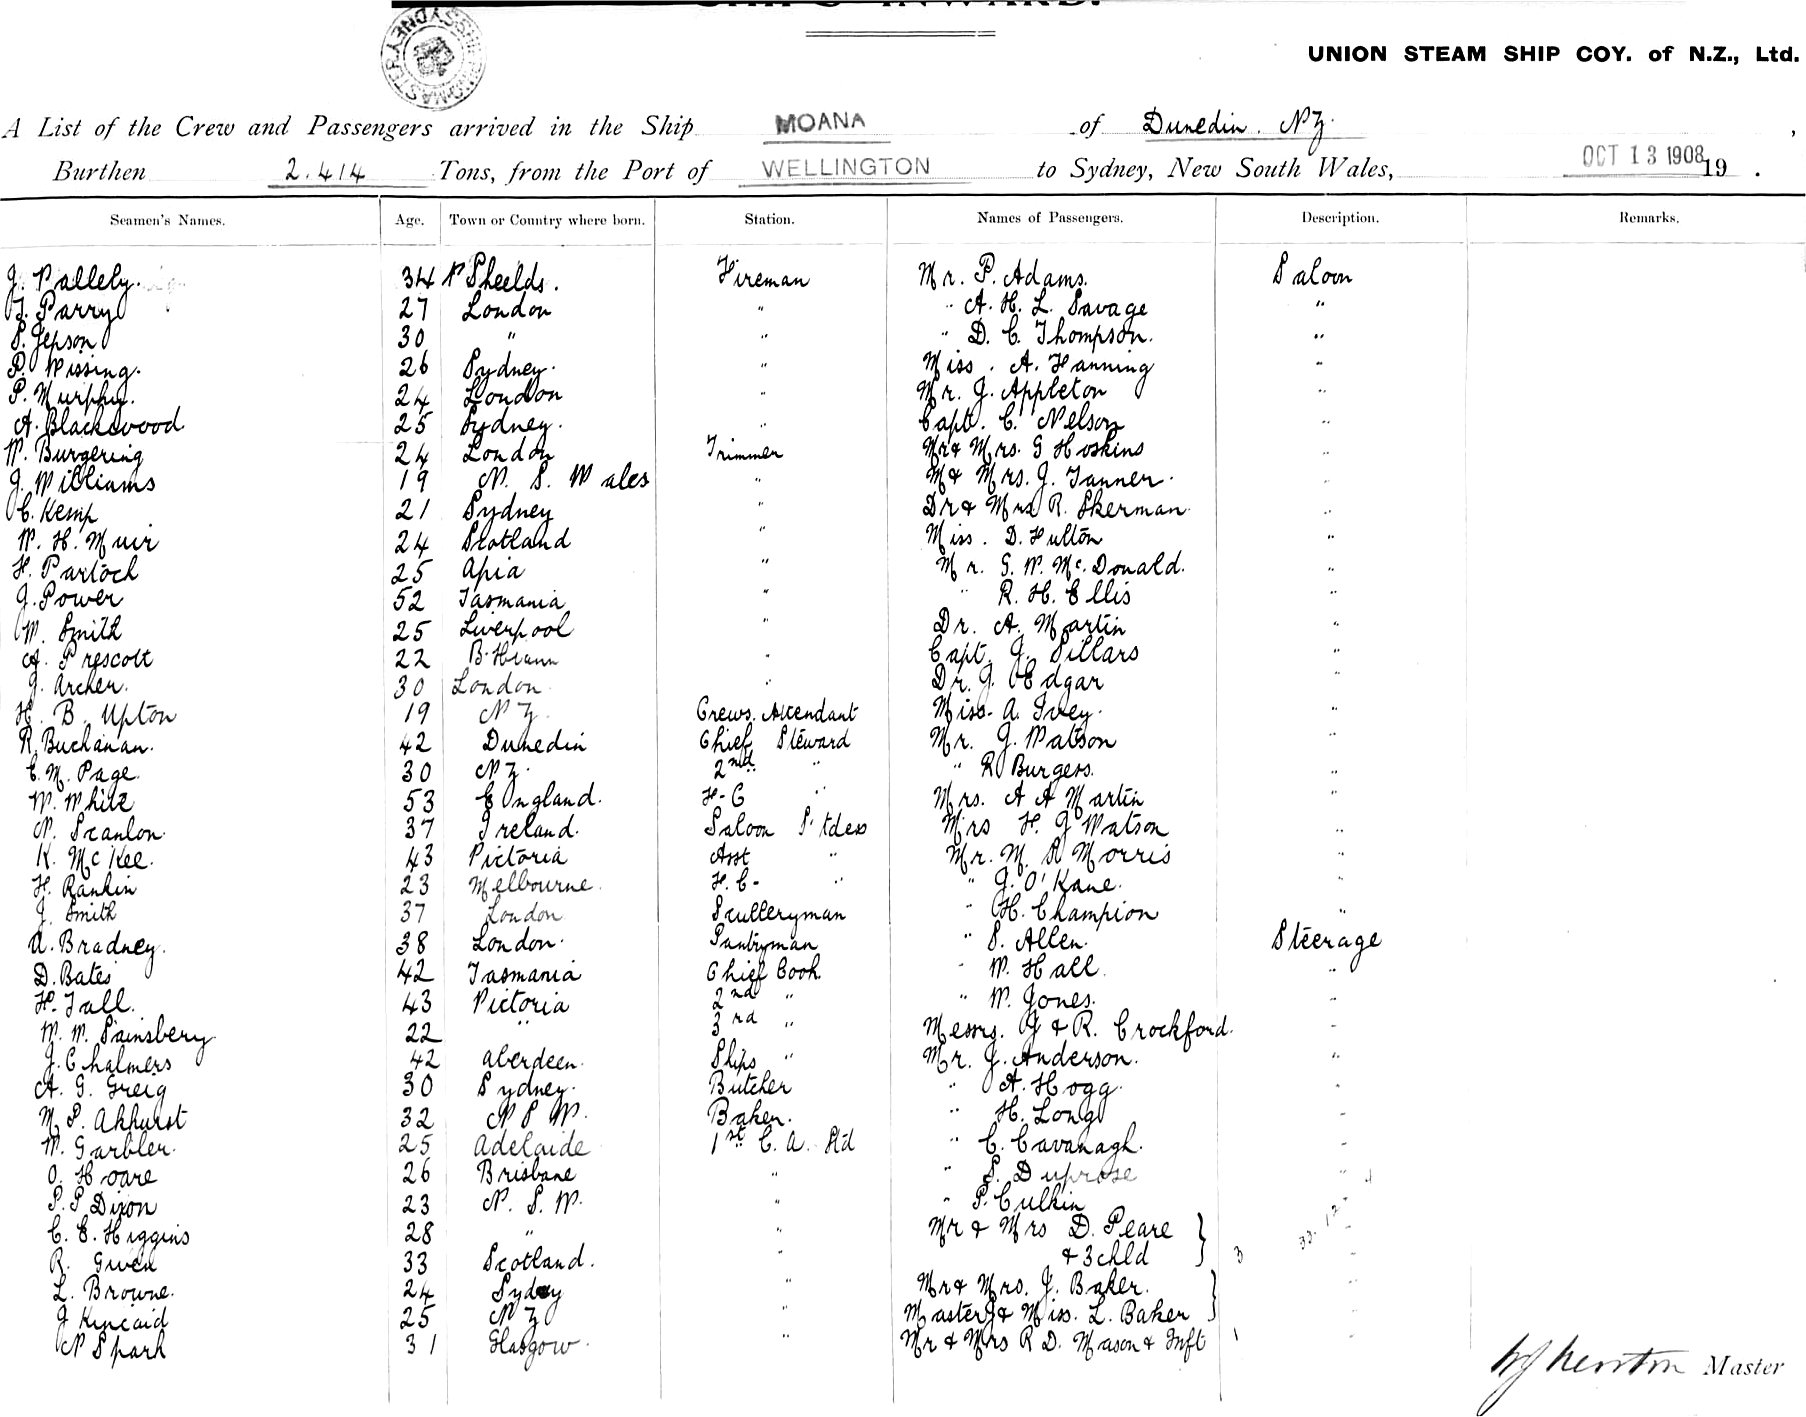 SHIPS INWARD.
UNION STEAM SHIP COY. of N.Z., Ltd.
A List of the Crew and Passengers arrived in the Ship MOANA of Dunedin. NZ.,
Burthen 2.414 Tons, from the Port of WELLINGTON to Sydney, New South Wales, OCT 13 1908 19 .
Seamen's Names. Age. Town or Country where born. Station. Names of Passengers. Description. Remarks.
J. Pallely. 34 N Sheelds. Fireman Mr. P. Adams. Saloon
T. Parry 27 London " " A. H. L. Savage "
S. Jepson 30 " " " D. C. Thompson. "
P. Wissing. 26 Sydney. " Miss. A. Hanning "
P. Murphy. 24 London " Mr. J. Appleton "
A. Blackwood 25 Sydney. " Capt. C. Nelson "
W. Burgering 24 London Trimmer Mr & Mrs. G Hoskins "
J. Williams 19 N. S. Wales " M & Mrs. J. Tanner. "
C. Kemp 21 Sydney " Dr & Mrs R. Skerman "
W. H. Muir 24 Scotland " Miss. D. Fulton "
H. Partoch 25 Apia " Mr. G. W. McDonald. "
J. Power 52 Tasmania " " R. H. Ellis "
W. Smith 25 Liverpool " Dr. A. Martin "
A. Prescott 22 " Capt. J. Sillars "
J. Archer. 30 London " Dr. J. Edgar "
H. B. Upton 19 NZ. Crews. Attendant Miss. A. Ivey. "
R. Buchanan. 42 Dunedin Chief Steward Mr. J. Watson "
C. M. Page. 30 NZ. 2nd " " R Burgess. "
W. White 53 England. F-C " Mrs. A A Martin "
N. Scanlon. 37 Ireland. Saloon Stdess Mrs H. J Watson "
K. McKee. 43 Victoria Asst " Mr. M. R Morris "
H. Rankin 23 Melbourne. F. C- " " J. O'Kane. "
J. Smith 37 London Sculleryman " H. Champion "
A. Bradney. 38 London. Pantryman " S. Allen. Steerage
D. Bates 42 Tasmania Chief Cook " W. Hall "
H. Tall. 43 Victoria 2nd " " W. Jones. "
W. W. Sainsbery 22 " 3rd " Messrs. J & R. Crockford. "
J. Chalmers 42 Aberdeen. Ships " Mr. J. Anderson. "
A. G. Greig 30 Sydney. Butcher " A. Hogg. "
M. P. Akhurst 32 N S W. Baker. " H. Long "
W. Garbler. 25 Adelaide 1st C. A. Std " C. Cavanagh. "
O. Hoare 26 Brisbane " " S. Duprose "
S. P Dixon 23 N. S. W. " " P. Culkin
C. E. Higgins 28 " " Mr & Mrs D. Peare "
R. Given 33 Scotland. " & 3 chld 3 "
L. Browne. 24 Sydney " Mr & Mrs. J. Baker. "
J Kincaid 25 NZ " Master J & Miss. L. Baker "
N Spark 31 Glasgow. " Mr & Mrs R D. Mason & Inft 1 "
Master